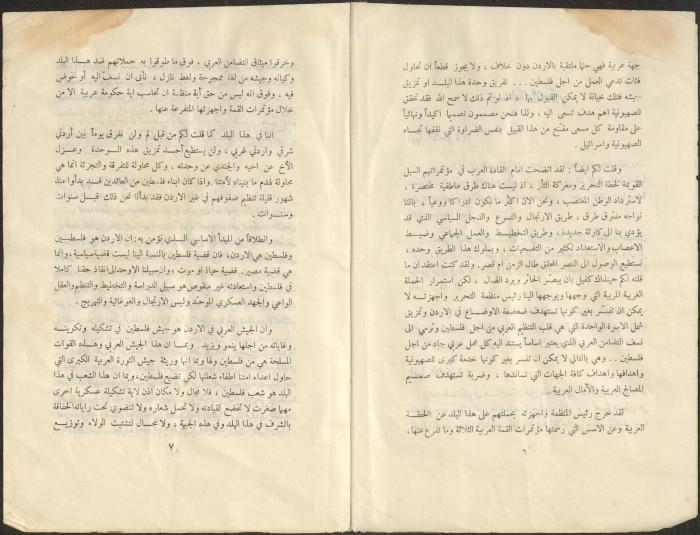 جهة عربية فهي حتما ملتقية بالاردن دون خلاف ، ولا يجوز قطعاً ان تحاول
فئات تدعي العمل من اجل فلسطين ... تفريق وحدة هذا البلد او تمزيق
جيشه فتلك خيانة لا يمكن القبول بها ، اذ لو تم ذلك لا سمح الله فقد تحقق
للصهيونية اهم هدف تسعى اليه ، ولذا فنحن مصممون تصميماً اكيداً ونهائياً
على مقاومة كل مسعى مقنّع من هذا القبيل بنفس الضراوة التي نقفها تجاه
الصهيونية واسرائيل .
وقلت لكم ايضاً : لقد اتضحت امام القادة العرب في مؤتمراتهم السبل
القويمة لخطة التحرير ومعركة الثأر ، اذ ليست هناك طرق عاطفية مختصرة ،
لاسترداد الوطن المغتصب ، ونحن الان اكثر ما نكون ادراكا ووعياً ، باننا
نواجه مفترق طرق ، طريق الارتجال والتسرع والدجل السياسي الذي قد
يؤدي بنا الى كارثة جديدة ، وطريق التخطيط والعمل الجماعي وضبط
الاعصاب والاستعداد لكثير من التضحيات ، وبسلوك هذا الطريق وحده ،
نستطيع الوصول الى النصر المحقق طال الزمن ام قصر . ولقد كنت اعتقد ان ما
قلته لكم حينذاك كفيل بان يبصّر الحائر ويرد الضال ، لكن استمرار الحملة
الغريبة المريبة التي وجهها ويوجهها الينا رئيس منظمة التحرير واجهزته لا
يمكن ان تفسّر بغير كونها تستهدف ضعضعة الاوضاع في الاردن وتمزيق
شمل الاسرة الواحدة التي هي قلب التنظيم العربي من اجل فلسطين وترمي الى
نسف التضامن العربي الذي يعتبر اساسا يستند اليه كل عمل عربي جاد من اجل
فلسطين .. وهي بالتالي لا يمكن ان تفسر بغير كونها خدمة كبرى للصهيونية
واهدافها واهداف كافة الجهات التي تساندها ، وضربة تستهدف صميم
المصالح العربية والآمال العربية .
لقد خرج رئيس المنظمة واجهزته بحملتهم على هذا البلد عن الخطة
العربية وعن الاسس التي رسمتها مؤتمرات القمة العربية الثلاثة وما تفرع عنها ،
٦
وخرقوا ميثاق التضامن العربي ، فوق ما طوقوا به حملاتهم ضد هذا البلد
وكيانه وجيشه من لغة ممجوجة ولغط نازل ، نأبى ان نسف اليه أو نخوض
فيه ، وفوق انه ليس من حق أية منظمة ان تحاسب اية حكومة عربية الا من
خلال مؤتمرات القمة واجهزتها المتفرعة عنها .
اننا في هذا البلد كما قلت لكم من قبل لم ولن نفرق يوماً بين أردني
شرقي واردني غربي ، ولن يستطيع أحد تمزيق هذه الوحدة وعزل
الاخ عن اخيه والجندي عن وحدته ، وكل محاولة للتفرقة والتجزئة انما هي
محاولة لهدم ما بنيناه لأمتنا . واذا كان ابناء فلسطين من العائدين قد بدأوا منذ
شهور قليلة تنظيم صفوفهم في غير الاردن فقد بدأنا نحن ذلك قبل سنوات
وسنوات .
وانطلاقاً من المبدأ الاساسي الذي نؤمن به : ان الاردن هو فلسطين
وفلسطين هي الاردن ، فان قضية فلسطين بالنسبة الينا ليست قضية سياسية ، وانما
هي قضية مصير . قضية حياة او موت ، وان سبيلنا الاوحد الى انقاذ حقنا كاملا
في فلسطين واستعادته غير منقوص هو سبيل الدراسة والتخطيط والتنظيم والعقل
الواعي والجهد العسكري الموحد وليس الارتجال والغوغائية والتهريج .
وان الجيش العربي في الاردن هو جيش فلسطين في تشكيله وتكوينه
وغاياته من اجلها ينمو ويزيد . وبما ان هذا الجيش العربي وهذه القوات
المسلحة هي من فلسطين ولها وبما انها وريثة جيش الثورة العربية الكبرى التي
حاول اعداء امتنا اطفاء شعلتها لكي تضيع فلسطين ، وبما ان هذا الشعب في هذا
البلد هو شعب فلسطين ، فلا مجال ولا مكان اذن لاية تشكيلة عسكرية اخرى
مهما صغرت لا تخضع لقيادته ولا تحمل شعاره ولا تنضوي تحت راياته الخفاقة
بالشرف في هذا البلد وفي هذه الجبهة ، ولا مجال لتشتيت الولاء وتوزيع
٧